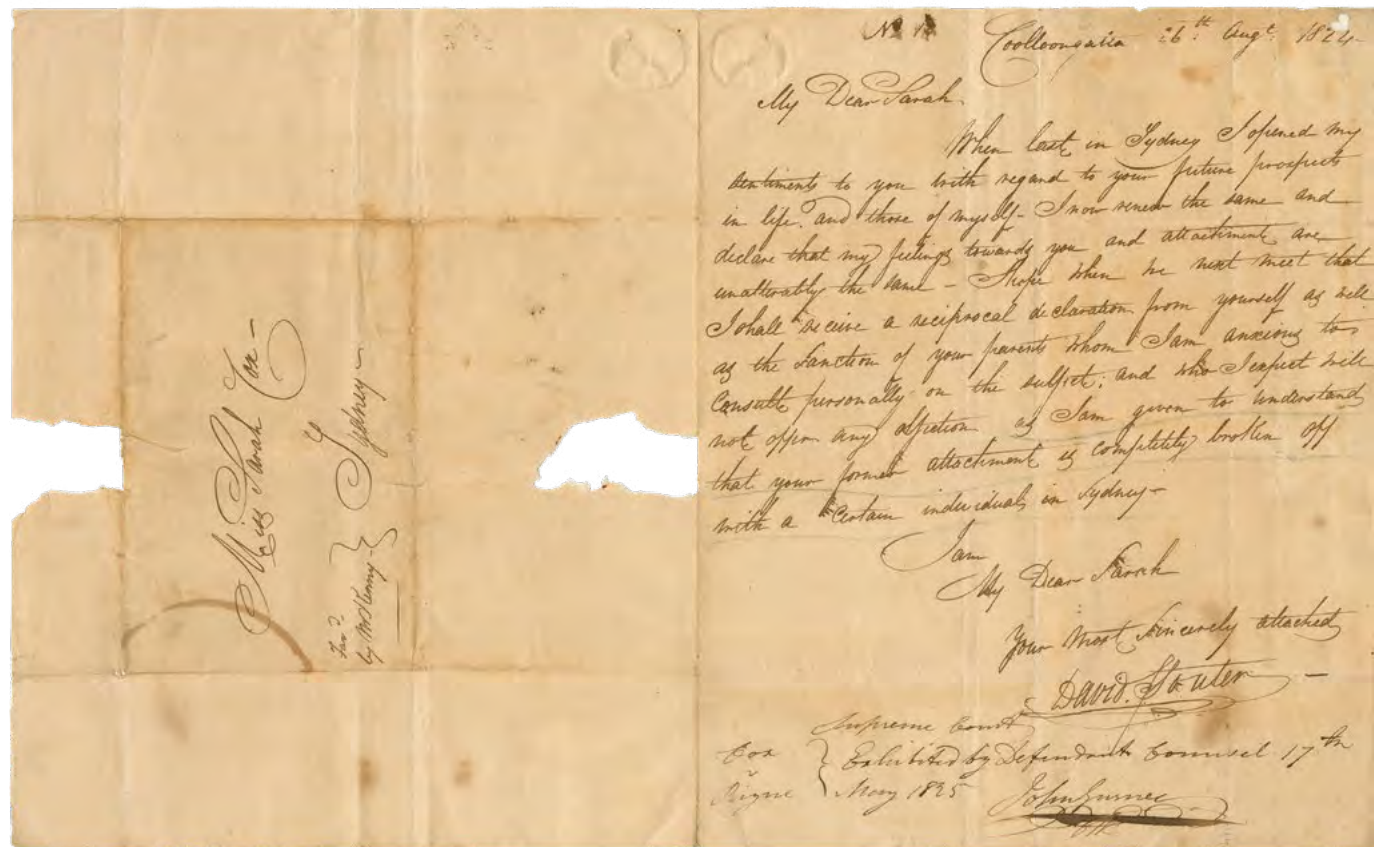 Miss Sarah Cox -
Sydney -
Fav.d
by Mr Kenny
No 1
Coolloongatta 26th Augt. 1824
My Dear Sarah
When last in Sydney I opened my
sentiments to you with regard to your future prospects
in life? and those of myself - I now renew the same and
declare that my feelings towards you and attachment are
unalterably the same - I hope when we next meet that
I shall receive a reciprocal declaration from yourself as well
as the Sanction of your parents whom I am anxious to
Consult personally on the subject; and who I expect will
not offer any objection as I am given to understand
that your former attachment is completely broken off
with a "Certain individual in Sydney -
I am
My Dear Sarah
Your Most Sincerely attached
David Souter -
Supreme Court
Cox
v
Payne
Exhibited by Defendants Counsel 17th
May 1825
John Gurner